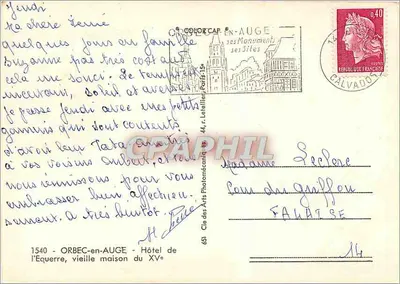 Jeudi
Ma chère Irène
quelques jours en famille
Suzanne pas très costaud
cela me souci. Le temps est
inconstant, soleil et averses
je passe jeudi avec mes petits
gamins qui sont contents
d'avoir leur Tata
à vos voisins Aubert, et
nous réunissons pour vous
embrasser bien affectueu-
sement. A très bientôt.
1540 - ORBEC-en-AUGE - Hôtel de
l'Equerre, vieille maison du XVe
COLORCAP
EN-AUGE
ses Monuments
ses Sites
CALVADOS
0,40
REPUBLIQUE FRANÇAISE
POSTES
651 Cie des Arts Photomécaniques 44, r. Letellier, Paris-15e
Madame Leclerc
Cour du Griffon
FALAISE
14
CPAPHIL